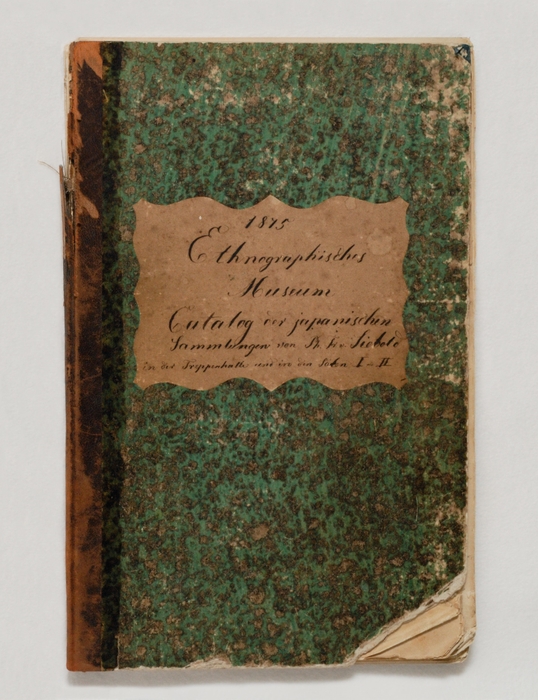 1875
Ethnographisches
Museum
Catalog der japanischen
Sammlungen von Ph. Fr. v. Siebold
in der Treppenhalle und in den Sälen I – II.